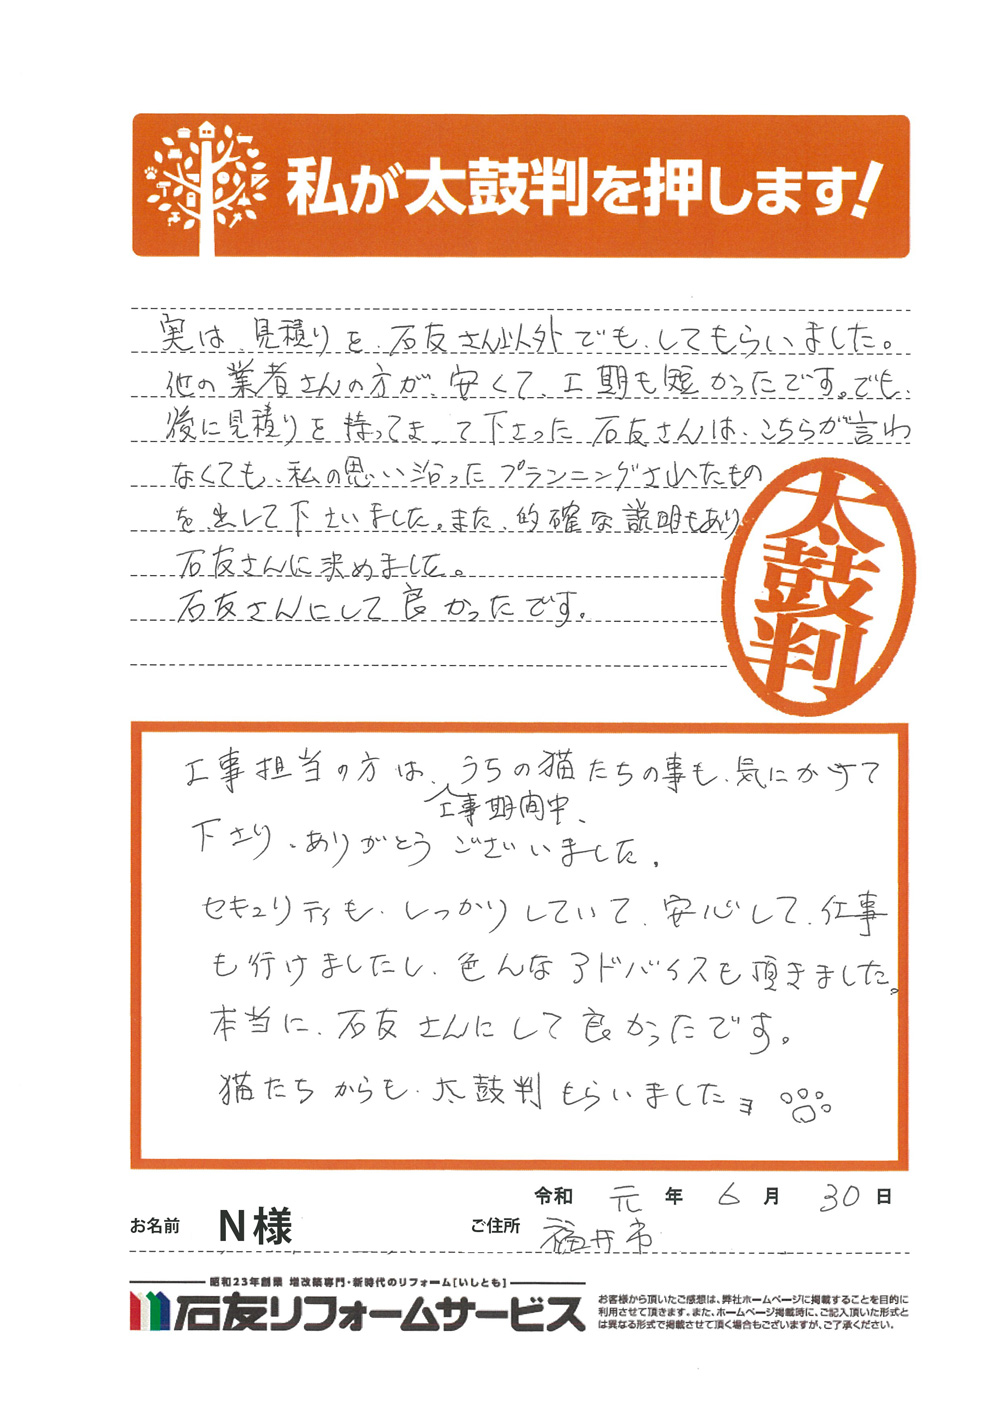 私が太鼓判を押します!
実は、見積りを、石友さん以外でも、してもらいました。
他の業者さんの方が、安くて、工期も短かったです。でも、
後に見積りを持ってまって下さった石友さんは、こちらが言わ
なくても、私の思い沿ったプランニングされたもの
を、出して下さいました。また、的確な説明もあり
石友さんに決めました。
石友さんにして良かったです。
太鼓判
工事担当の方は、うちの猫たちの事も、気にかけて
工事期間中、
下さり、ありがとうございました。
セキュリティも、しっかりしていて、安心して、仕事
も行けましたし、色んなアドバイスも頂きました。
本当に、石友さんにして良かったです。
猫たちからも、太鼓判もらいましたョ
令和 元 年 6 月 30 日
お名前 N様 ご住所 福井市
昭和23年創業 増改築専門・新時代のリフォーム[いしとも]
石友リフォームサービス
お客様から頂いたご感想は、弊社ホームページに掲載することを目的に
利用させて頂きます。また、ホームページ掲載時に、ご記入頂いた形式と
は異なる形式で掲載させて頂く場合もございますが、ご了承ください。